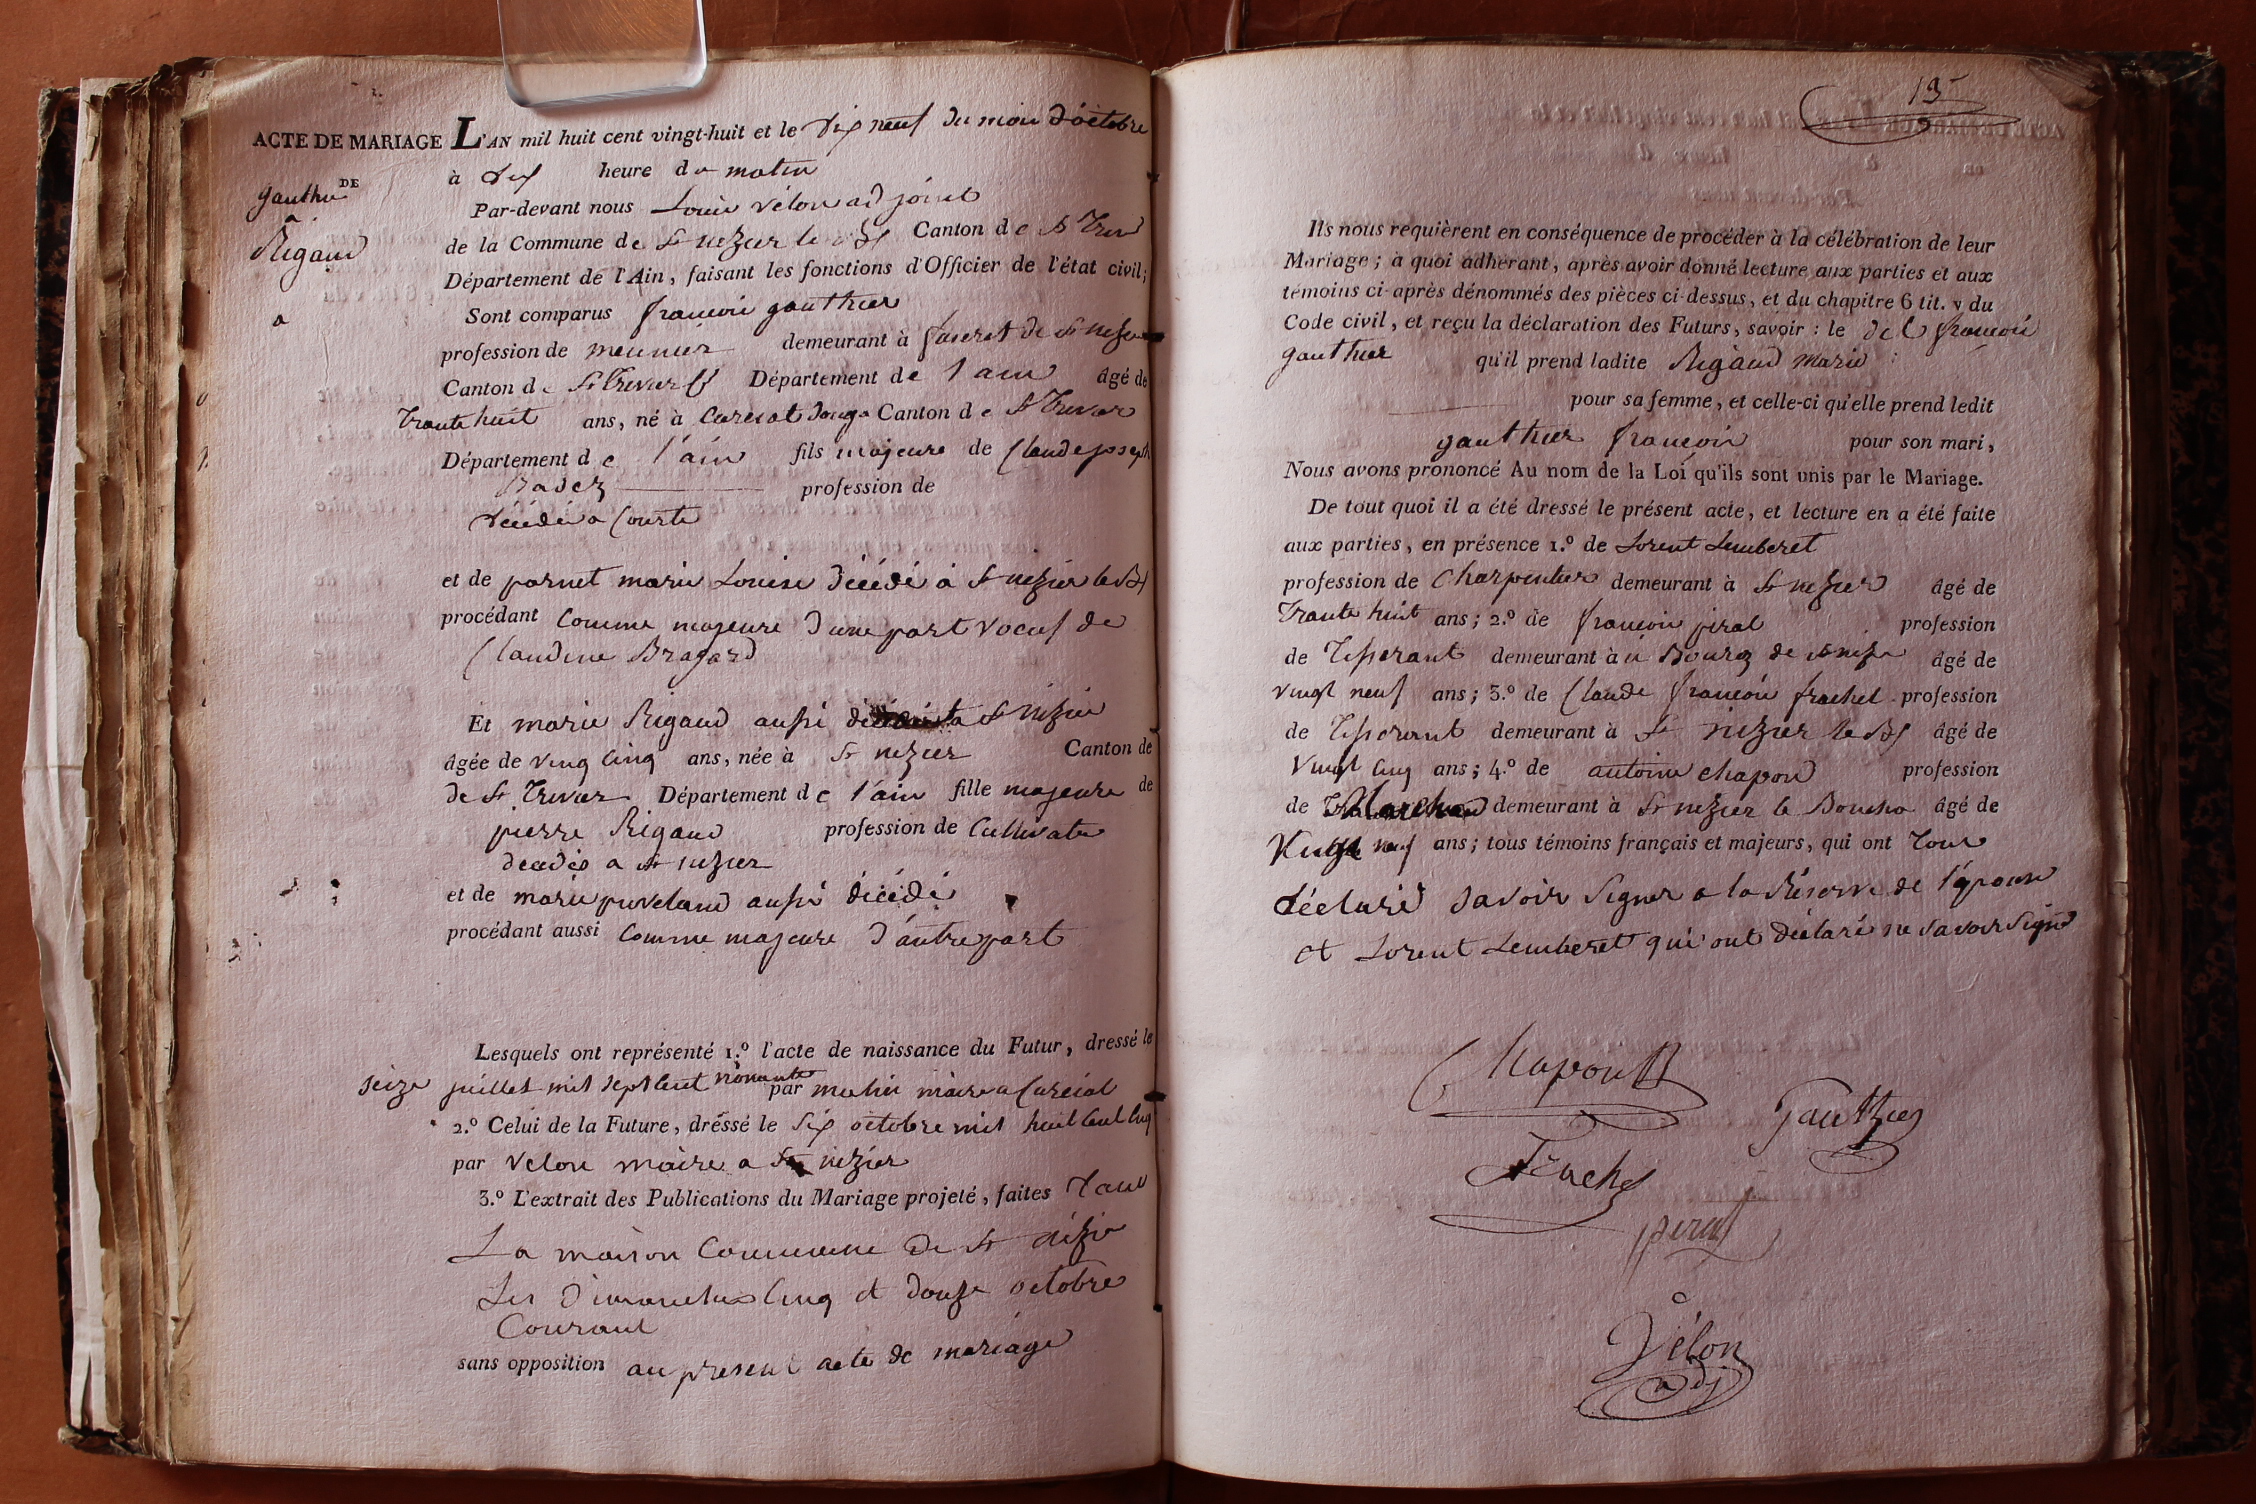 ACTE DE MARIAGE L'AN mil huit cent vingt-huit et le dix neuf du mois d'octobre
DE
gauthie
a
Rigaud
a
à dix heure du matin
Par-devant nous Louis vélon adjoint
de la Commune de St nezier le Canton de St Triv
Département de l'Ain, faisant les fonctions d'Officier de l'état civil;
Sont comparus françois gauthier
profession de meunier demeurant à de St
Canton de St Trivier Département de l'ain âgé de
Trante huit ans, né à Curciat donga Canton de St Trivier
Département de l'ain fils majeure de Claude joseph
profession de
décédé a Courte
et de marie Louise décédé à St nizier le
procédant Comme majeure d'une part vocuf de
Claudine Bragard
Et marie Rigaud aussi St nizier
âgée de vingt Cinq ans, née à St nezier Canton de
de St Trivier Département de l'ain fille majeure de
pierre Rigaud profession de Cultivate
décédés a St nizier
et de marie aussi décédé
procédant aussi Comme majeure d'autre part
Lesquels ont représenté 1.º l'acte de naissance du Futur, dressé le
seize juillet mil sept cent nonante par maire a Curciat
2.º Celui de la Future, dréssé le six octobre mil huit Cent Cinq
par velon maire a St nizier
3.º L'extrait des Publications du Mariage projeté, faites dans
La maison Commune de St nizie
Les dimanches Cinq et douze octobre
Courant
sans opposition au présent acte de mariage
19
Ils nous requièrent en conséquence de procéder à la célébration de leur
Mariage; à quoi adhérant, après avoir donné lecture aux parties et aux
témoins ci-après dénommés des pièces ci-dessus, et du chapitre 6 tit. v du
Code civil, et reçu la déclaration des Futurs, savoir : le dit françois
gauthier qu'il prend ladite Rigaud marie
pour sa femme, et celle-ci qu'elle prend ledit
gauthier françois pour son mari,
Nous avons prononcé Au nom de la Loi qu'ils sont unis par le Mariage.
De tout quoi il a été dressé le présent acte, et lecture en a été faite
aux parties, en présence 1.º de Lorent Lemberet
profession de Charpentier demeurant à St nezier âgé de
Trante huit ans; 2.º de françois piral profession
de Tisserant demeurant à Bourg de âgé de
vingt neuf ans; 3.º de Claude françois frachet profession
de Tisserant demeurant à St nizier le âgé de
Vingt Cinq ans; 4.º de antoine chapon profession
de Marchand demeurant à St nezier le Boucho âgé de
neuf ans; tous témoins français et majeurs, qui ont Tous
déclaré savoir signer a la Réserve de l'épouse
et Lorent Lemberet qui ont déclaré ne savoir signé
Chapon
Gauthier
Frache
piral
Vélon
adj